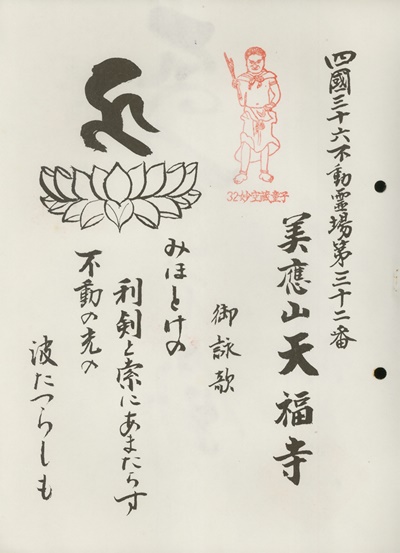 四國三十六不動霊場第三十二番
32妙空蔵童子
美應山天福寺
御詠歌
みほとけの
利剣と索にあまたらす
不動の光の
波たつらしも